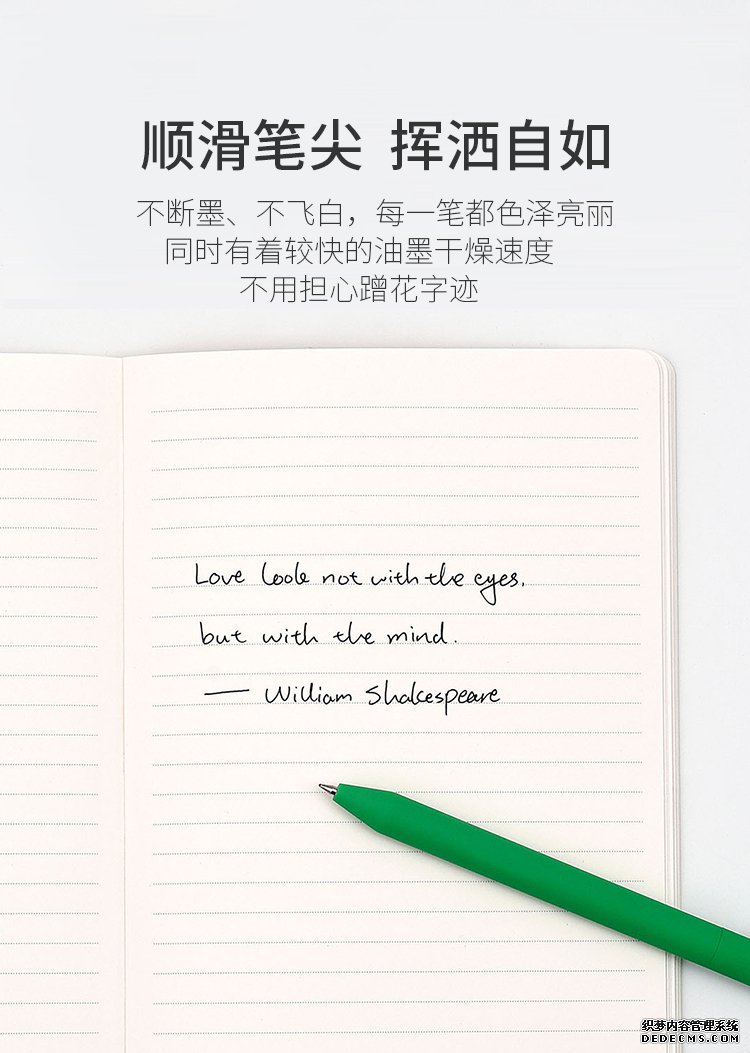 顺滑笔尖 挥洒自如
不断墨、不飞白，每一笔都色泽亮丽
同时有着较快的油墨干燥速度
不用担心蹭花字迹
Love look not with the eyes,
but with the mind.
— William Shakespeare
织梦内容管理系统
DEDECMS.COM